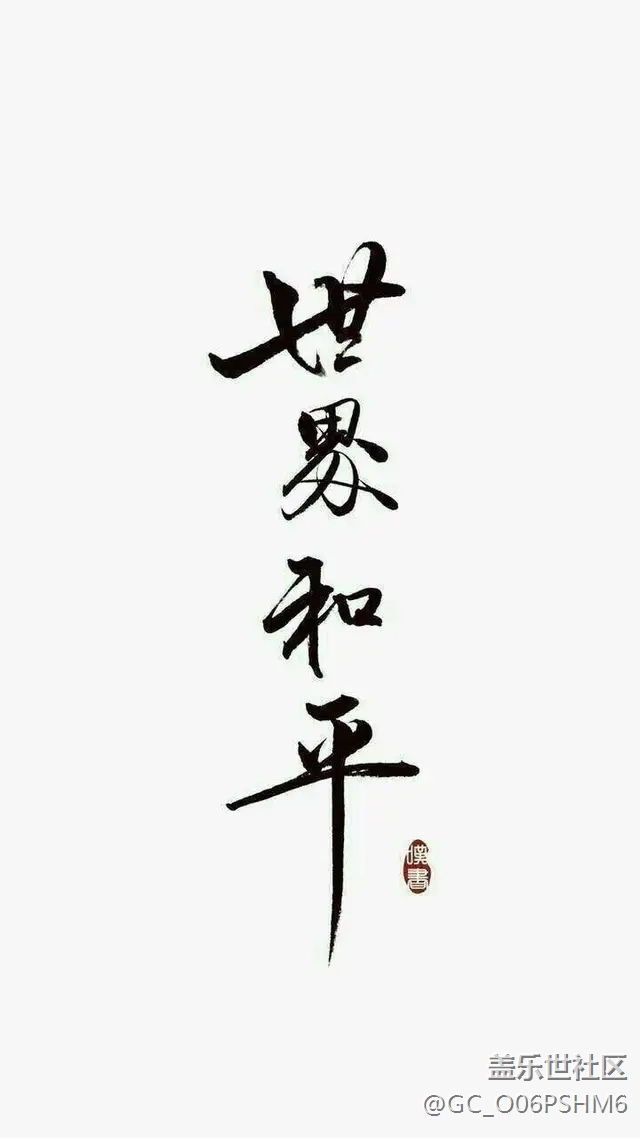 世界和平
盖乐世社区
@GC_O06PSHM6